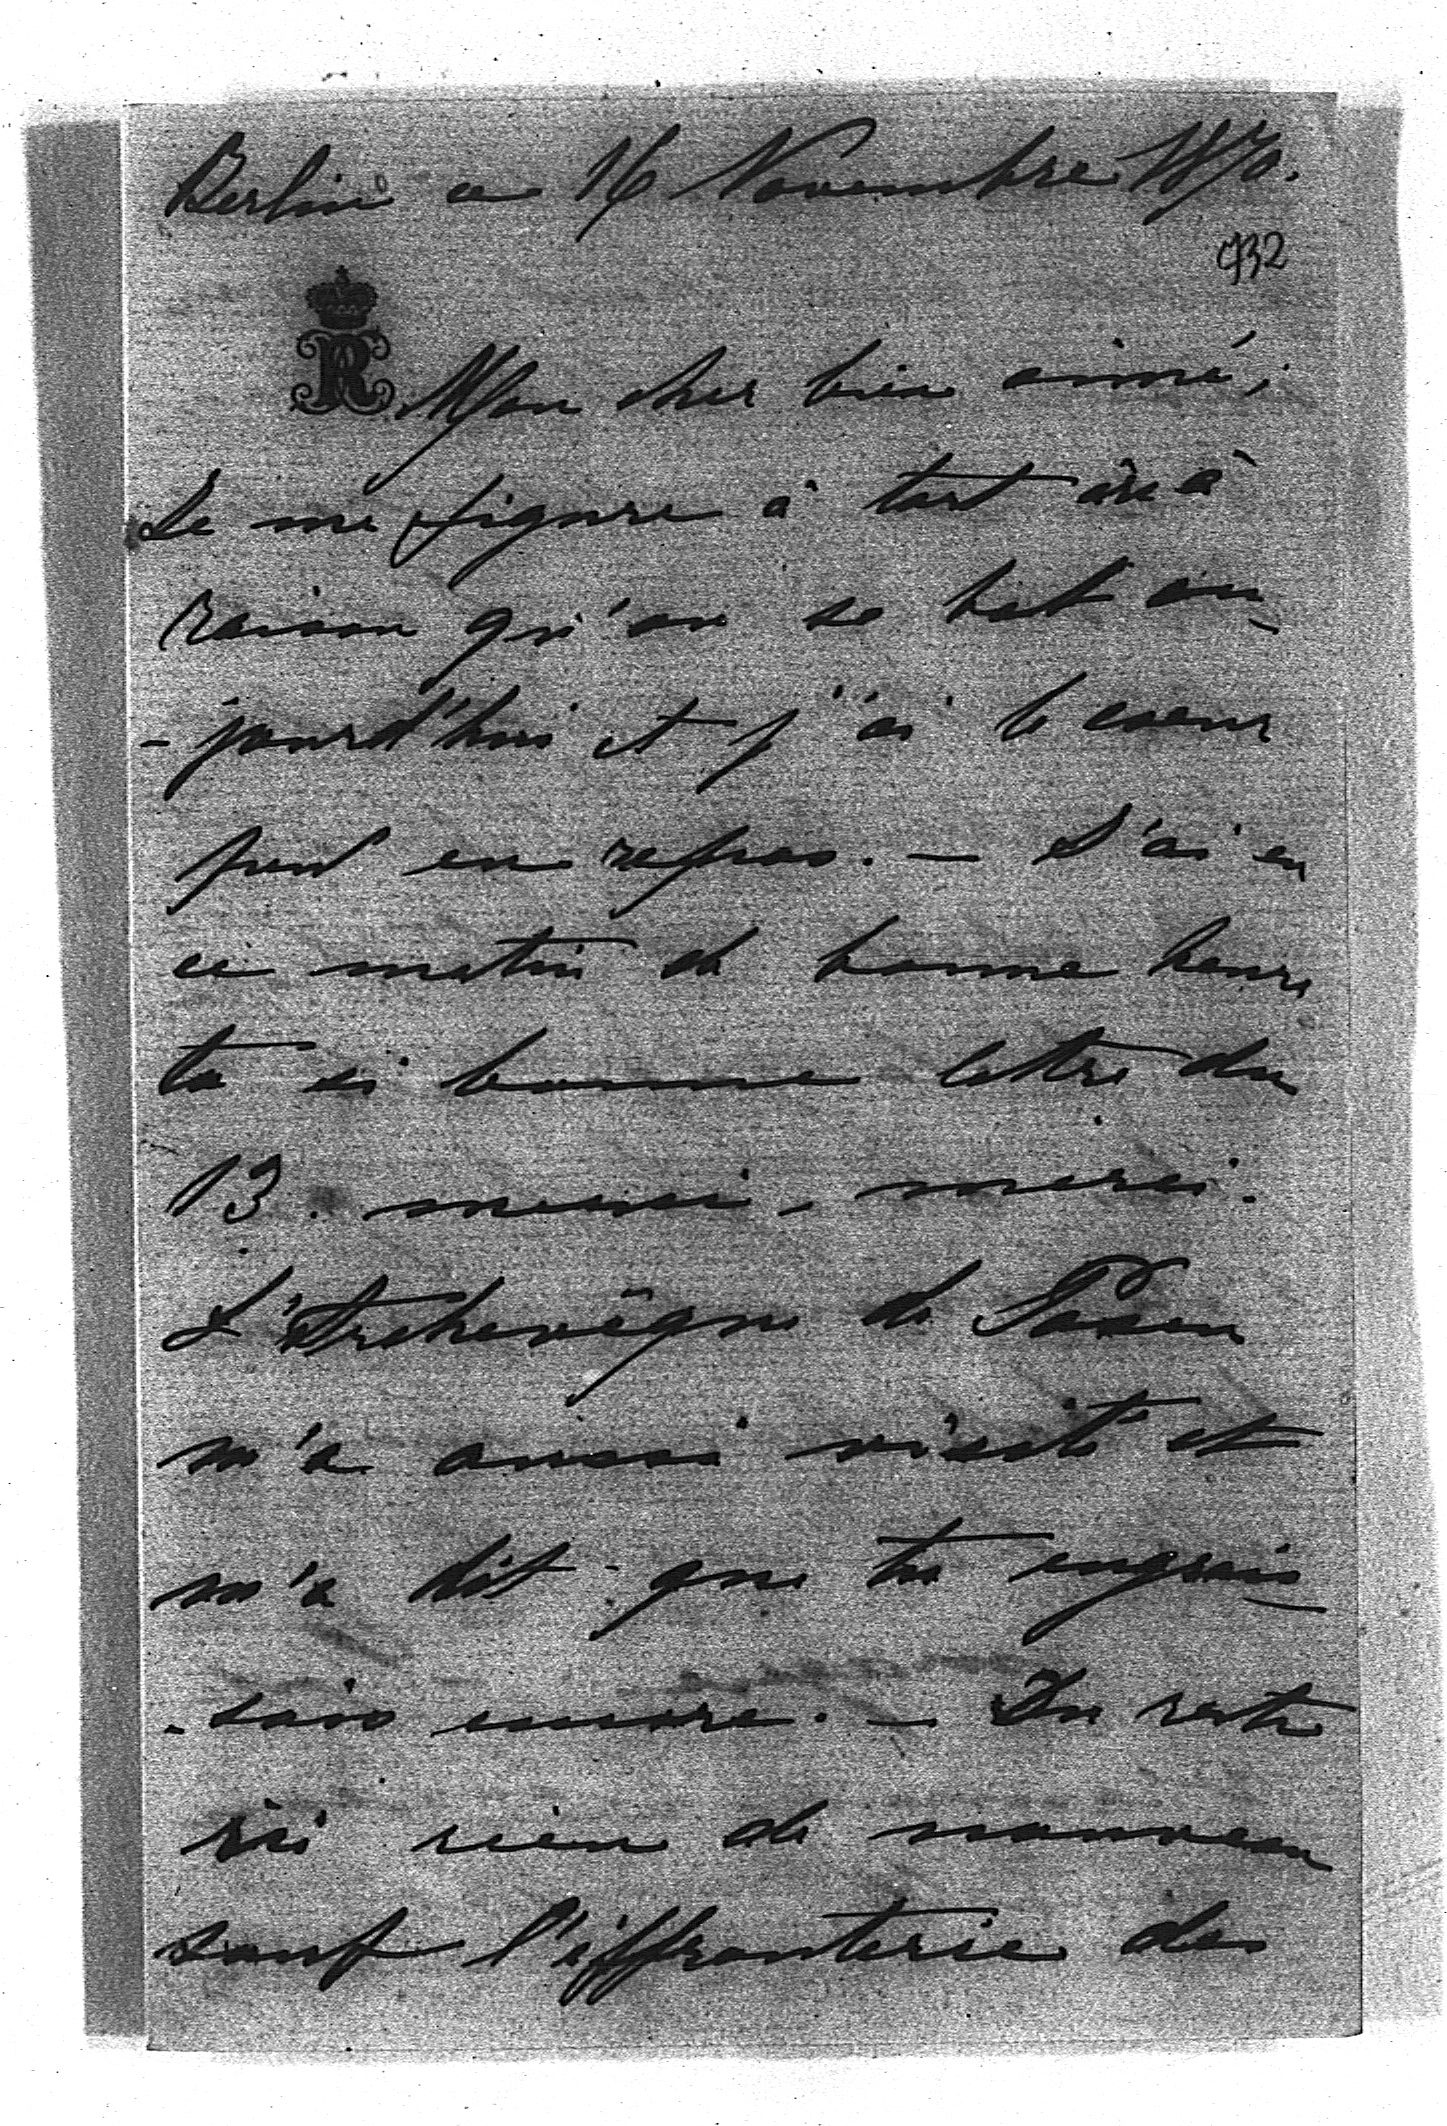 Berlin ce 16 Novembre 1870.
932
R
Mon cher bien aimé,
Je me figure à tort où à
raison qu'on se bat au-
-jourd'hui et j'ai le coeur
peu en repos. — J'ai eu
ce matin de bonne heure
ta si bonne lettre du
13. merci, merci.
L'Archevêque de Posen
m'a aussi visité et
m'a dit que tu engrais-
-sais encore. — Du reste
ici rien de nouveau
sauf l'effronterie des